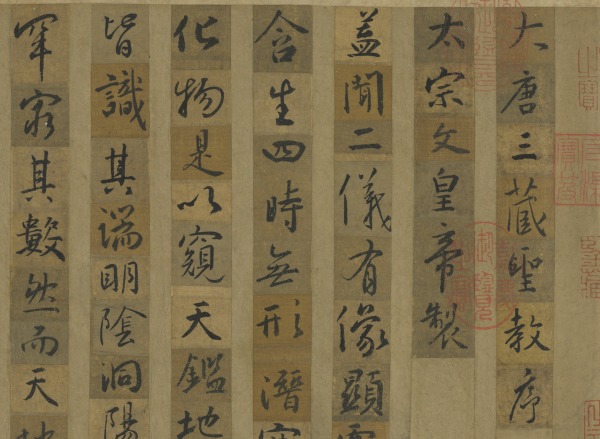 大唐三藏聖教序
太宗文皇帝製
蓋聞二儀有像顯
含生四時無形潛
化物是以窺天鑑地
皆識其端明陰洞陽
罕窮其數然而天地